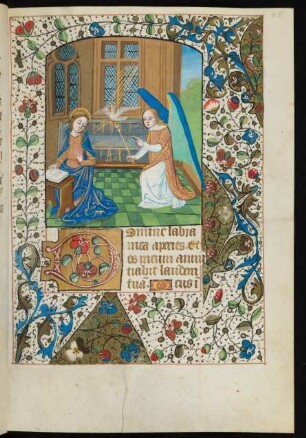 Domine labia
mea aperies. Et
os meum annū
tiabit laudem
tuā.